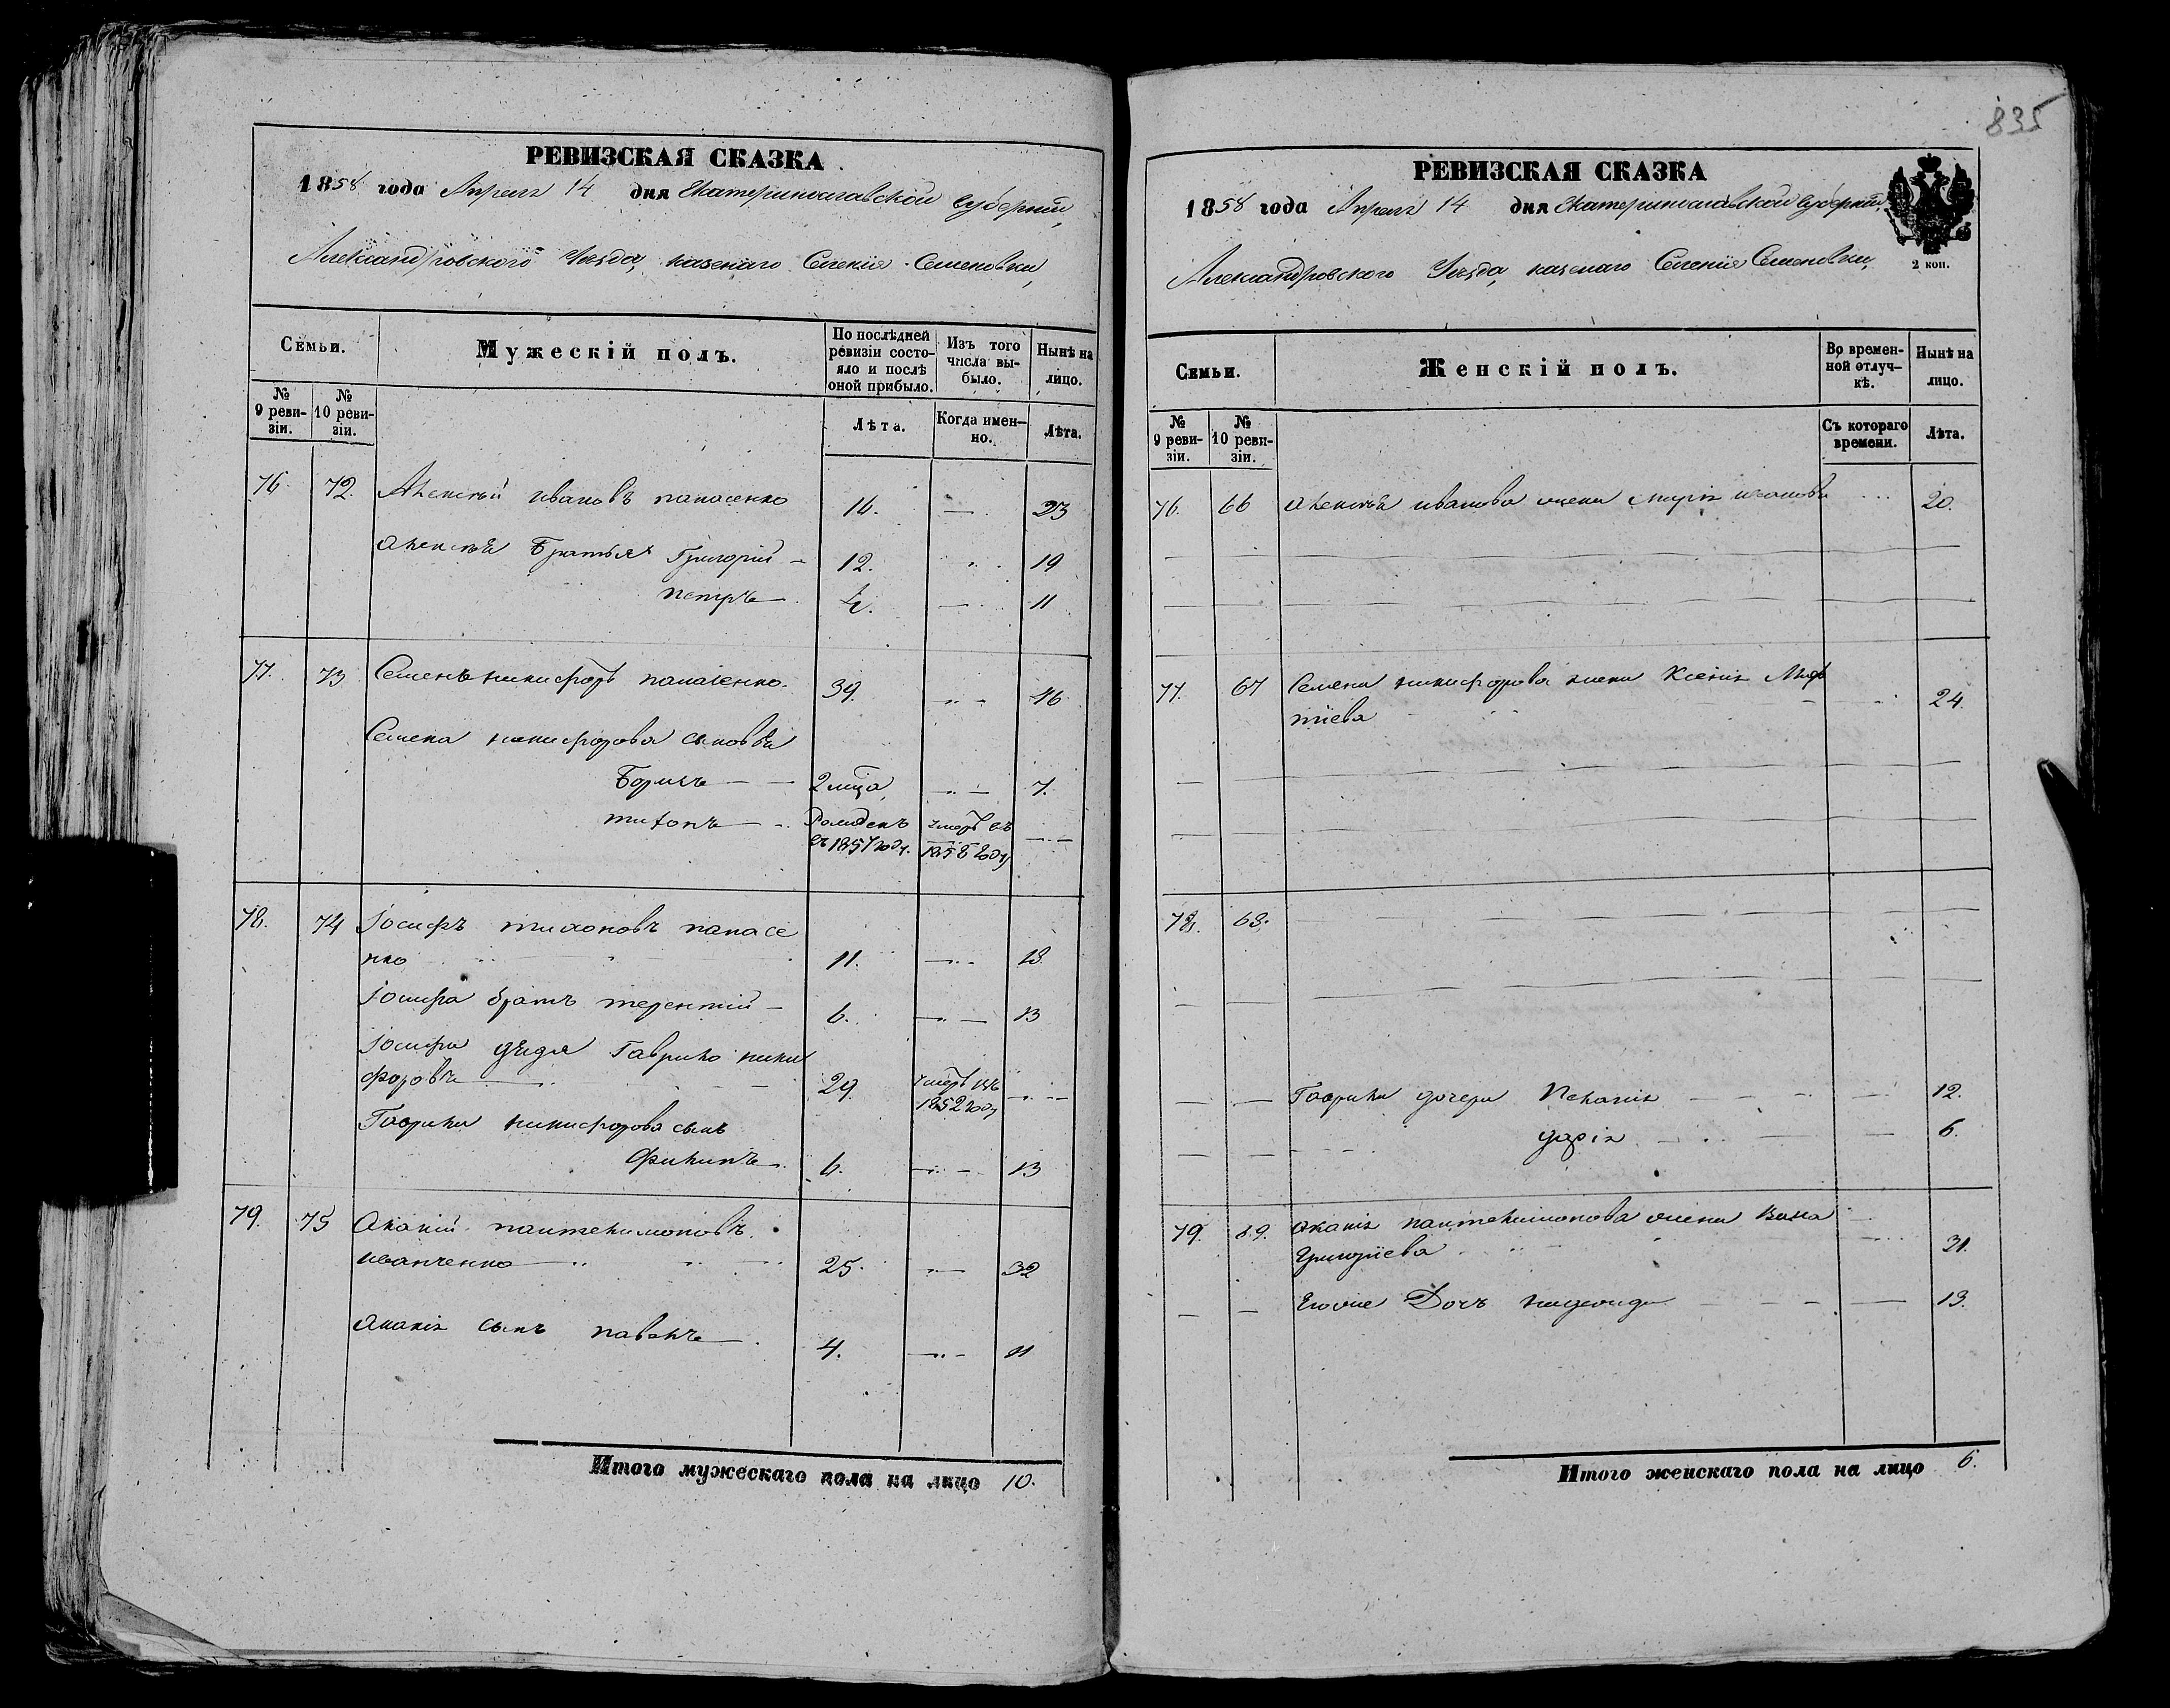 РЕВИЗСКАЯ СКАЗКА
1858 года Апреля 14 дня Екатеринославской Губерніи,
Александровского Уѣзда, казенаго Селенія Семеновки,
Семьи.
Мужескій полъ.
По послѣдней ревизіи состояло и послѣ оной прибыло.
Изъ того числа выбыло.
Нынѣ на лицо.
№ 9 ревизіи.
№ 10 ревизіи.
Лѣта.
Когда именно.
Лѣта.
76. 72. Алексѣй ивановъ панасенко 14. — 23
Алексѣя Братья Григорій — 12. 19
петръ — 4. — 11
77. 73 Семенъ никифоръ панасенко. 39. 46
Семена никифорова сыновья
Борисъ — — 2 мца, — 7.
тихонъ — Рожденъ умеръ въ
въ 1857 году. 1858 году — —
78. 74 Іосифъ тихоновъ панасе
нко 11. — 18.
Іосифа братъ терентій — 6. — 13
Іосифа дядя Гаврило ники
форовъ — 29. умеръ въ
1852 году — —
Гаврилы никифорова сынъ
филипъ — 6. — 13
79. 75 Ананій пантелимоновъ
иванченко — 25. — 32
Ананія сынъ павелъ — 4. — 11
Итого мужескаго пола на лицо 10.
835
РЕВИЗСКАЯ СКАЗКА
1858 года Апреля 14 дня Екатеринославской Губерніи,
2 коп.
Александровского Уѣзда, казенаго Селенія Семеновки,
Семьи.
Женскій полъ.
Во временной отлучкѣ.
Нынѣ на лицо.
№ 9 ревизіи.
№ 10 ревизіи.
Съ котораго времени.
Лѣта.
76. 66 Алексѣя иванова жена иванова 20.
77. 67 Семена никифорова жена Ксенія
тіева 24.
78. 68.
Гаврилы дочери Пелагія — 12.
дарія — 6.
79. 69. Ананія пантелимонова жена
Григоріева 31.
Еговые Дочь — 13.
Итого женскаго пола на лицо 6.